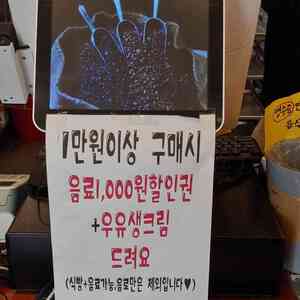 1만원이상 구매시
음료1,000원할인권
+우유생크림
드려요
(식빵+음료가능,음료만은 제외입니다♥)